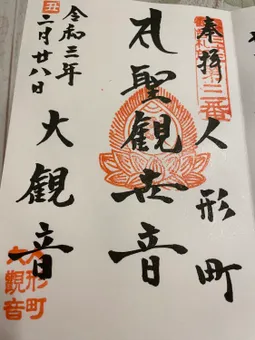 奉拝 人形町
三番
聖観世音
大観音
令和三年
丑
二月廿八日
人形町
大觀音